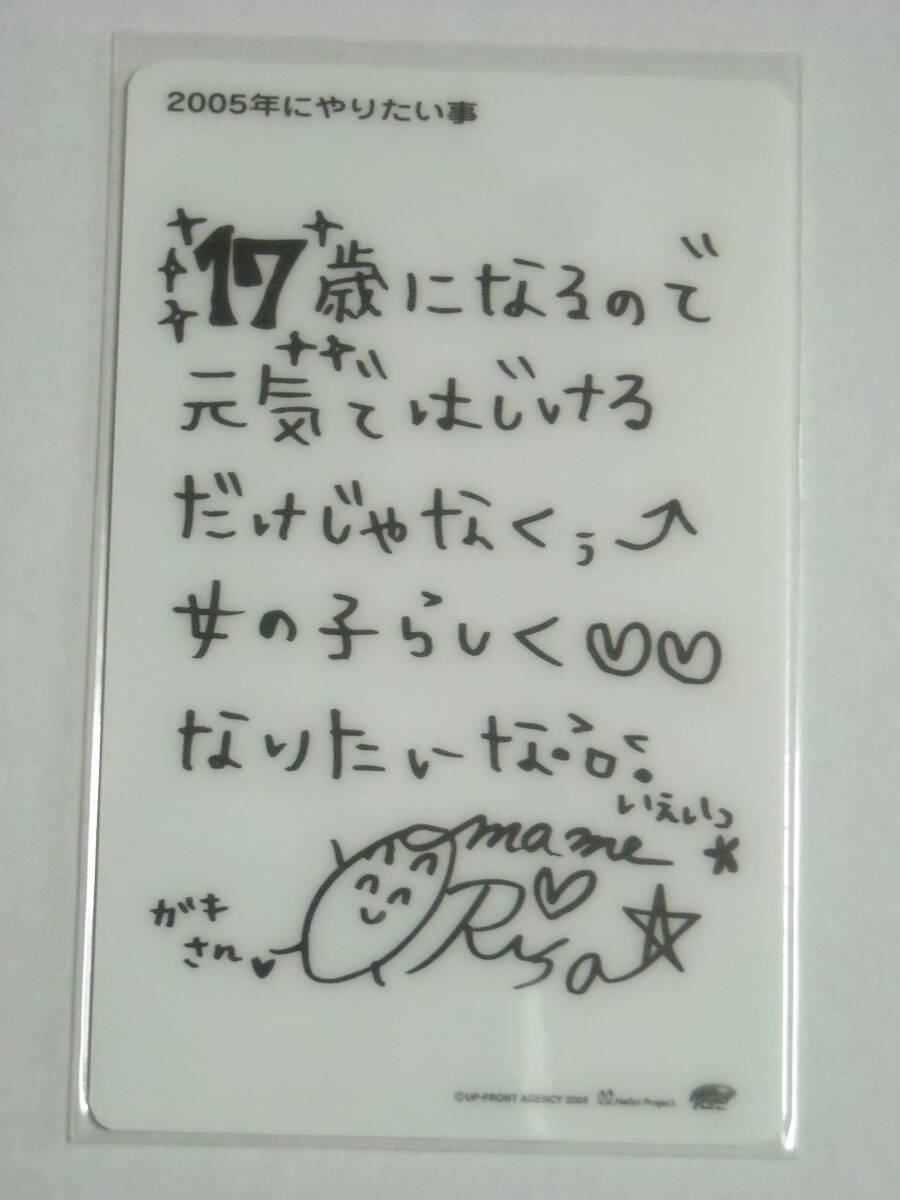 2005年にやりたい事
17歳になるので
元気ではじける
だけじゃなくぅ⤴
女の子らしく♡♡
なりたいな
いえいっ
mame
ガキ
さん♥
Risa☆
©UP-FRONT AGENCY 2005 Hello! Project.